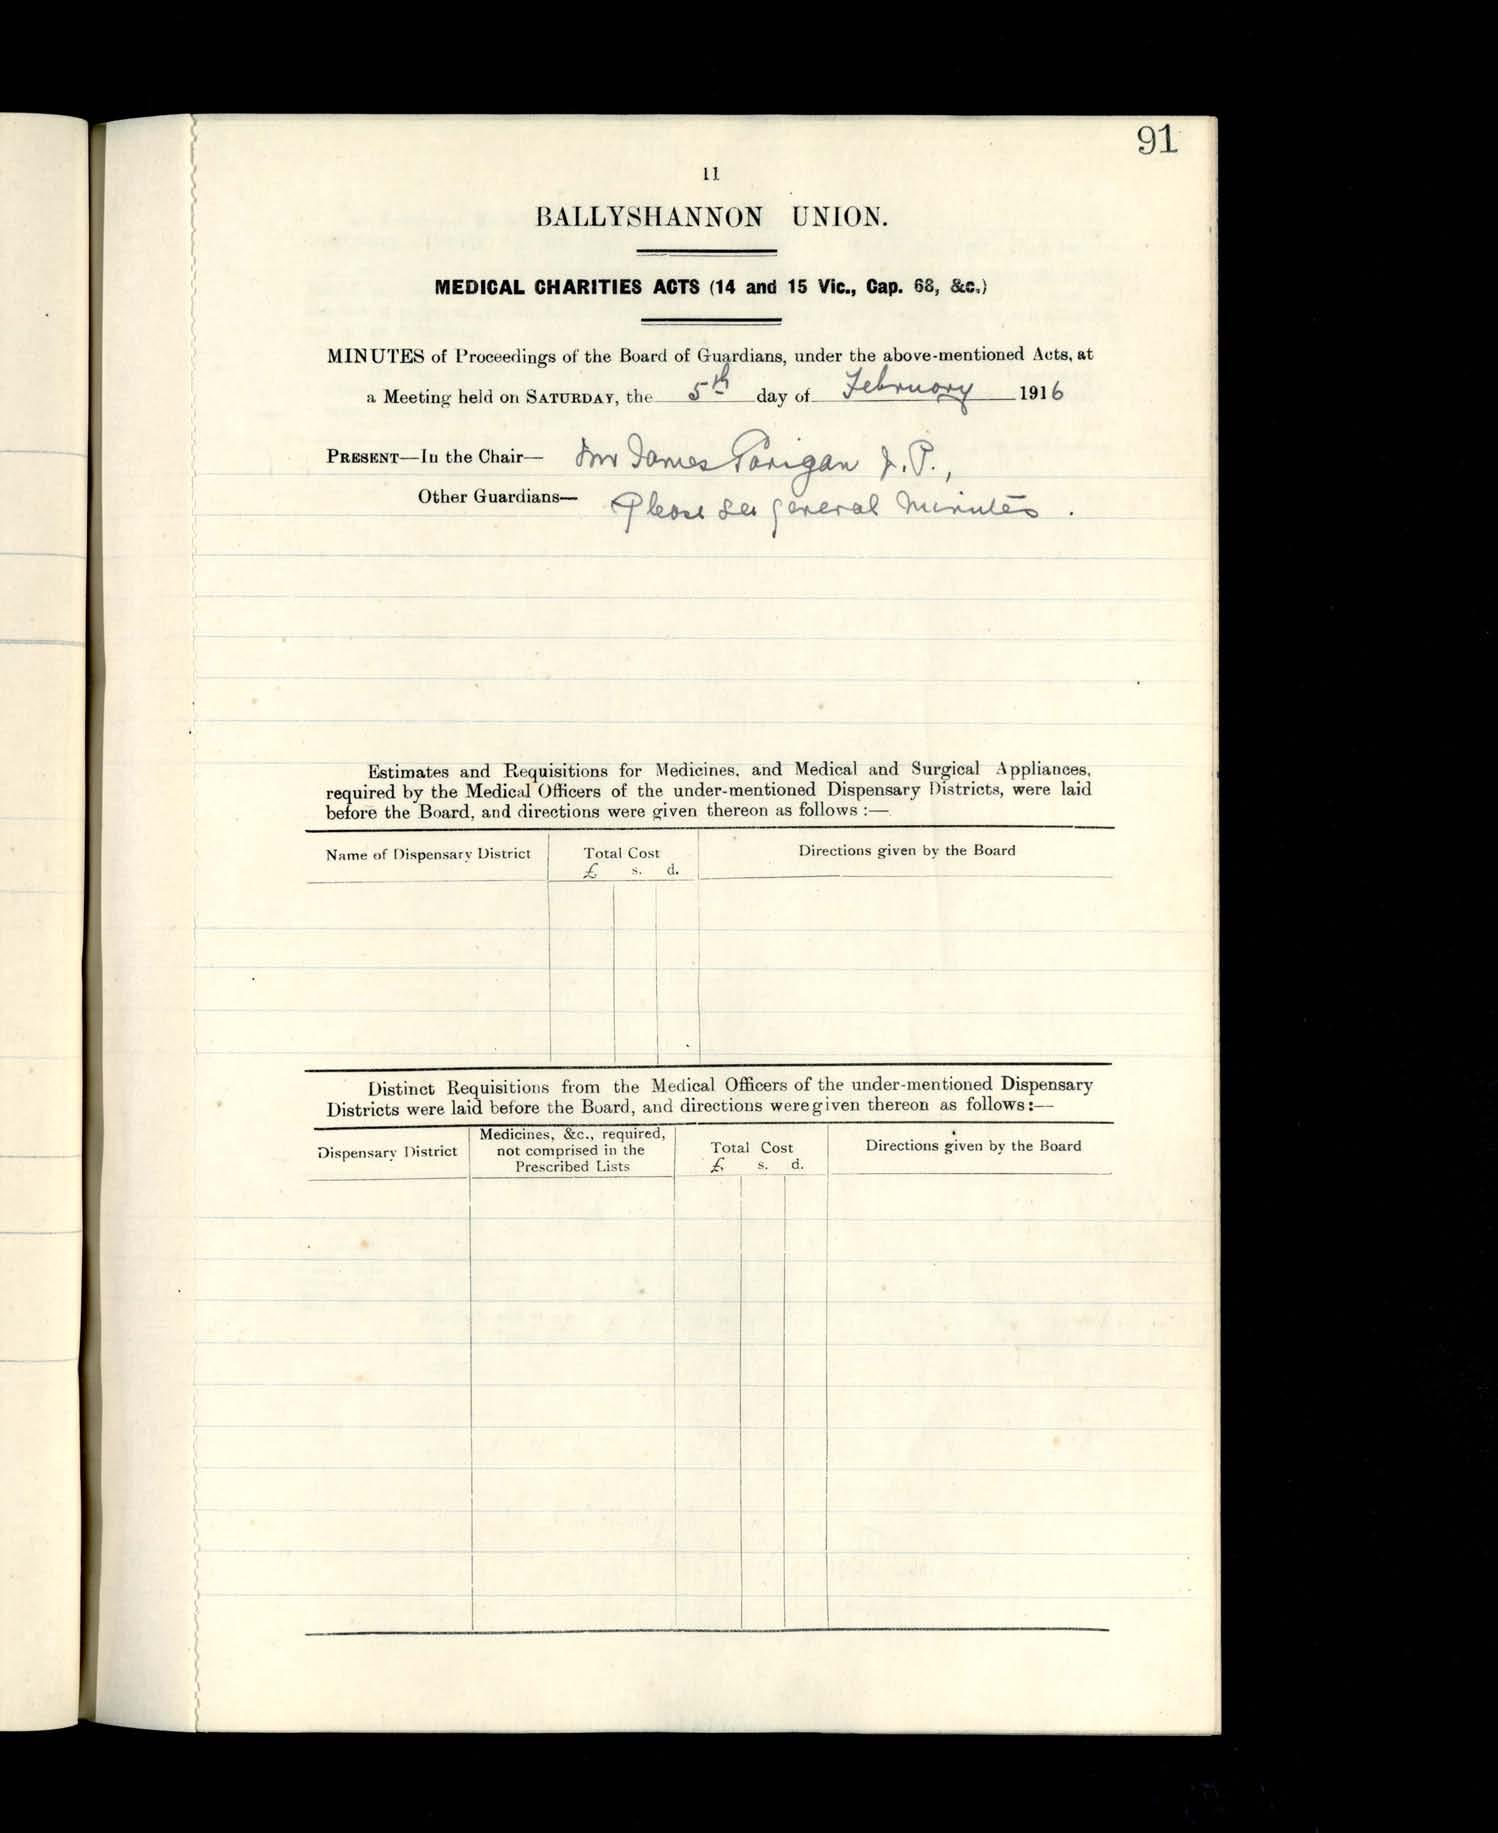 91
11
BALLYSHANNON UNION.
MEDICAL CHARITIES ACTS (14 and 15 Vic., Cap. 68, &c.)
MINUTES of Proceedings of the Board of Guardians, under the above-mentioned Acts, at
a Meeting held on SATURDAY, the 5th day of February 1916
PRESENT—In the Chair— Mr James J.P.,
Other Guardians— Please see general minutes.
Estimates and Requisitions for Medicines, and Medical and Surgical Appliances,
required by the Medical Officers of the under-mentioned Dispensary Districts, were laid
before the Board, and directions were given thereon as follows :—
Name of Dispensary District Total Cost Directions given by the Board
£ s. d.
Distinct Requisitions from the Medical Officers of the under-mentioned Dispensary
Districts were laid before the Board, and directions were given thereon as follows:—
Dispensary District
Medicines, &c., required,
not comprised in the
Prescribed Lists
Total Cost
£ s. d.
Directions given by the Board